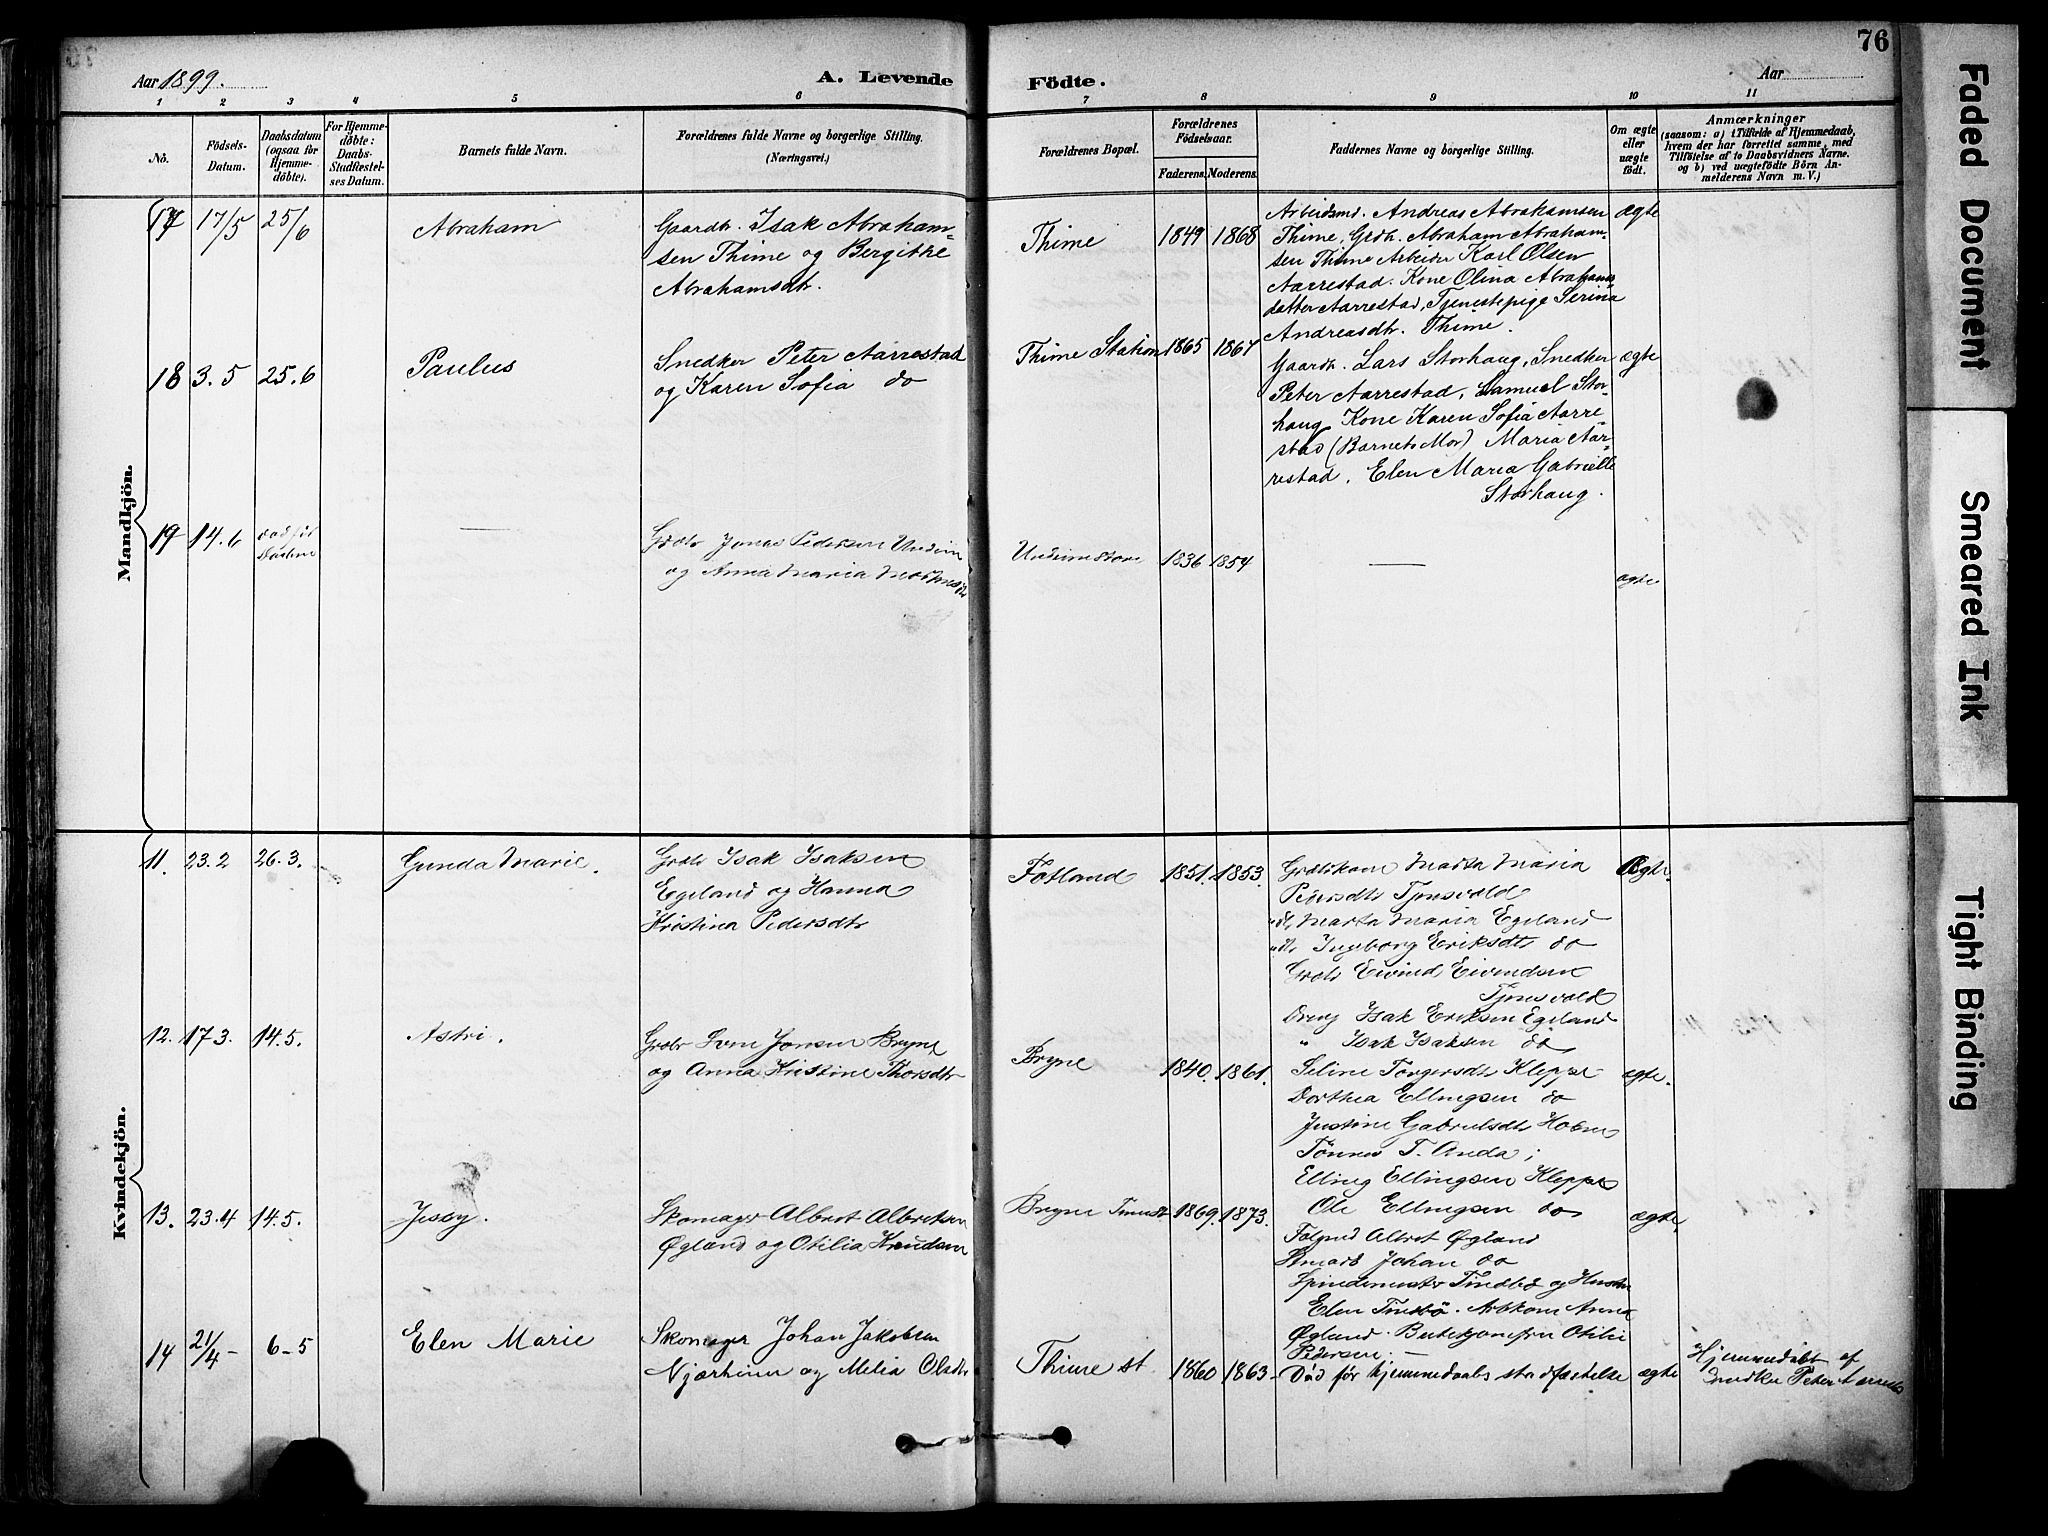 76
Aar 1899.
A. Levende
Födte.
Aar
1 2 3 4 5 6 7 8 9 10 11
No.
Födsels-Datum.
Daabsdatum (ogsaa for Hjemme-döbte).
For Hjemme-döbte: Daabs-Stadfæstel-ses Datum.
Barnets fulde Navn.
Forældrenes fulde Navne og borgerlige Stilling.
(Næringsvei.)
Forældrenes Bopæl.
Forældrenes Födselsaar.
Faderens. Moderens.
Faddernes Navne og borgerlige Stilling.
Om ægte eller uægte födt.
Anmærkninger
(saasom: a) i Tilfælde af Hjemmedaab,
hvem der har forrettet samme, med
Tilföielse af to Daabsvidners Navne.
og b) ved uægtefödte Börn An-
melderens Navn m. V.)
Mandkjön.
17 17/5 25/6 Abraham
Gaardb. Isak Abraham-
sen Thime og Bergitte
Abrahamsdtr.
Thime 1849 1868
Arbeidsmd. Andreas Abrahamsen
Thime, Grdb. Abraham Abraham-
sen Thime Arbeider Karl Olsen
Aarrestad. Kone Olina Abrahams-
datter Aarrestad, Tjenestepige Serina
Andreasdtr. Thime.
ægte
18 3.5 25.6 Paulus
Snedker Peter Aarrestad
og Karen Sofia do
Thime Station 1865 1867
Gaardb. Lars Storhaug, Snedker
Peter Aarrestad, Samuel Stor-
haug Kone Karen Sofia Aarre-
stad (Barnets Mor) Maria Aar-
restad, Elen Maria Gabrielle
Storhaug.
ægte
19 14.6 død før Daaben —
Grdbr Jonas Pedersen Undeim
og Anna Maria
1836 1854 —
ægte
Kvindekjön.
11. 23.2 26.3. Gunda Marie.
Grdbr Isak Isaksen
Egeland og Hanna
Kristina Pedersdtr
Fotland 1851. 1853.
Grdbkone Marta Maria
Pedersdtr Tjensvold
Marta Maria Egeland
Ingeborg Eriksdtr do
Grdbr Eivind Eivendsen
Tjensvold
Dreng Isak Eriksen Egeland
" Isak Isaksen do
Ægte.
12. 17.3. 14.5. Astri.
Grdbr Sven Jonsen Bryne
og Anna Kristine Thorsdtr
Bryne 1840. 1861.
Seline Torgersdtr Kleppe
Dorthea Ellingsen do
Justine Gabrielsdtr
Tønnes T. Anda;
Elling Ellingsen Kleppe
Ole Ellingsen do
ægte.
13. 23.4 14.5. Jessy.
Skomager Albret Albretsen
Øgland og Otilia Knudsen
Bryne 1869. 1873.
Albret Øgland
Johan do
og Hustru
Elen Anna
Øgland. Otilie
Pedersen. —
ægte,
14 21/4 - 6-5 Elen Marie
Skomager Johan Jakobsen
Njærheim og Melia Olsdtr
Thime st. 1860 1863 -
Død før hjemmedaabs stadfæstelse
ægte
Hjemmedøbt af
Snedker Peter Aarrestad
Faded Document
Smeared Ink
Tight Binding